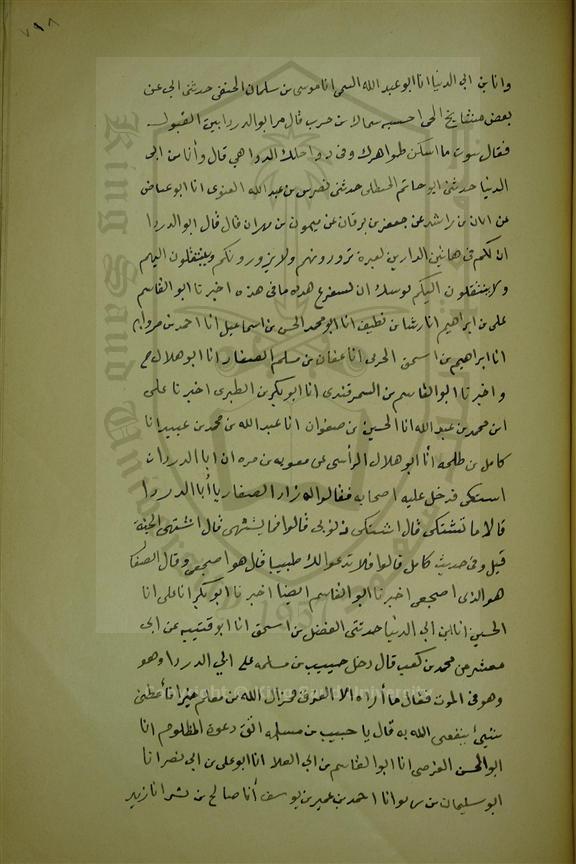 ٧٩٨
وانا بن ابي الدنيا انا ابو عبد الله التيمى انا موسى بن سلمان الحنفى حدثنى ابى عن
بعض مشايخ الحى احسبه سماك بن حرب قال مر ابو الدرداء بين القبور
فقال بيوت ما اسكن ظواهرك وفى دواخلك الدواهي قال وأنا بن ابى
الدنيا حدثنى ابو حاتم الحنظلى حدثنى نصر بن عبد الله الغنوى انا ابو عياض
عن ابان بن راشد عن جعفر بن برقان عن ميمون بن مهران قال قال ابو الدردا
ان لكم فى هاتين الدارين لعبرة تزورونهم ولا يزورونكم وينتقلون اليهم
ولا ينتقلون اليكم يوشك ان تستفرغ هذه ما فى هذه اخبرنا ابو القاسم
على بن ابراهيم انا رشا بن نظيف انا ابو محمد الحسن بن اسماعيل انا احمد بن مروان
انا ابراهيم بن اسحق الحربى انا عفان بن مسلم الصفار انا ابو هلال ح
واخبرنا ابو القاسم بن السمرقندى انا ابو بكر بن الطبرى اخبرنا على
ابن محمد بن عبد الله انا الحسين بن صفوان انا عبد الله بن محمد بن عبيد انا
كامل بن طلحه أنا ابو هلال الراسى عن معويه بن مره ان ابا الدرداء
اشتكى فدخل عليه اصحابه فقالوا له زار الصفار يا أبا الدردا
قالا ما تشتكى قال اشتكى ذنوبى قالوا فما تشتهى قال اشتهى الجنة
قيل وفى حديث كامل قالوا فلا ندعوا لك طبيبا قال هو اضجعنى وقال الصفار
هو الذى اضجعنى اخبرنا ابو القاسم ايضا اخبرنا ابو بكر انا على انا
الحسين انا ابن ابي الدنيا حدثنى الفضل بن اسحق انا ابو قتيبه عن ابى
معشر عن محمد بن كعب قال دخل حبيب بن مسلمه على ابي الدردا وهو
وهو فى الموت فقال ما أراه الا الفراق فجزاك الله من معلم خيرا فأعطنى
شيئا ينفعنى الله به قال يا حبيب بن مسلمه اتق دعوة المظلوم انا
ابو الحسن الفرضى انا ابو القاسم بن ابى العلا انا ابو على بن ابى نصر انا
ابو سليمان بن انا احمد بن عمير بن يوسف أنا صالح بن بشر انا زيد
King Saud University
1957
Copyright © King Saud University